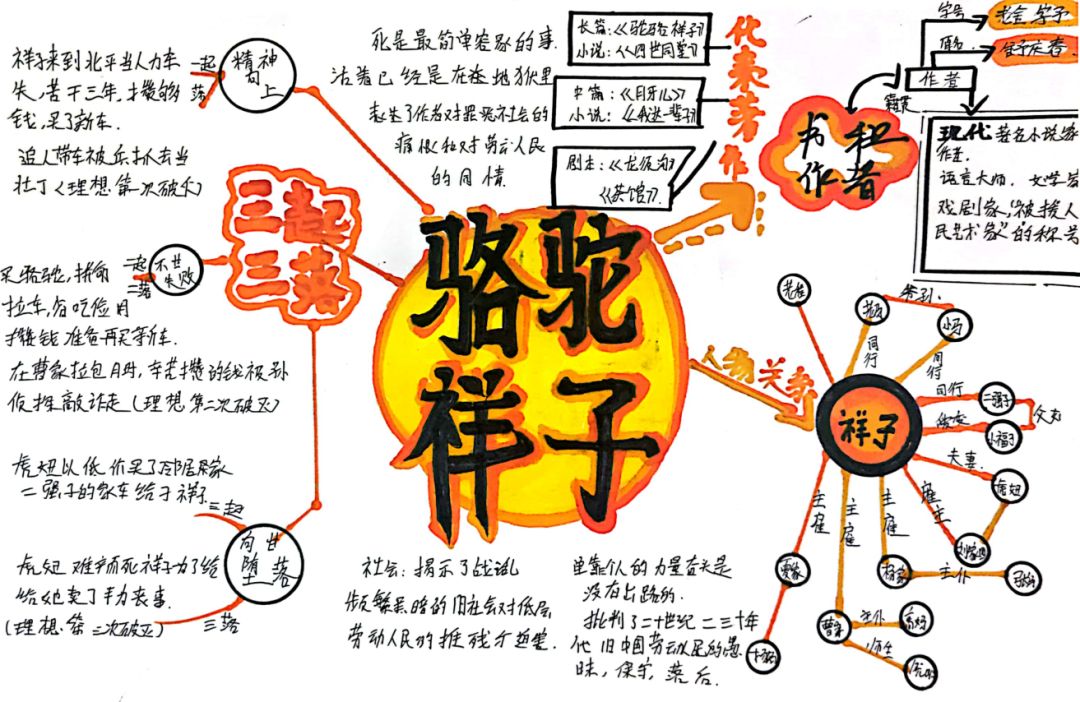 骆驼
祥子
三起
三落
精神
向上
一起
一落
祥子来到北平当人力车
夫,苦干三年,攒够
钱,买了新车.
连人带车被兵抓去当
壮丁(理想第一次破灭)
不甘
失败
一起
二落
卖骆驼,拼命
拉车,省吃俭用
攒钱准备再买新车.
在曹家拉包月时,辛苦攒的钱被孙
侦探敲诈走(理想第二次破灭)
虎妞以低价买了邻居
二强子的家车给了祥子
三起
自甘
堕落
虎妞难产而死祥子为了给
给她卖了车办丧事.
(理想第三次破灭)
三落
死是最简单容易的事.
活着已经是在地狱里
表生了作者对罪恶社会的
痛恨和对劳动人民
的同情.
代表著作
长篇:《骆驼祥子》
小说:《四世同堂》
中篇:《月牙儿》
小说:《我这一辈子》
剧本:《龙须沟》
《茶馆》.
书和
作者
作者
字号
老舍,字舍予
原名
舒庆春.
现代著名小说家
作家.
语言大师,文学家
戏剧家,"被授人
民艺术家"的称号
人物关系
祥子
老马
小马
同行
同行
同行
二强子
小福子
父女
夫妻.
虎妞
雇主
主雇
主雇
主雇
夏家
杨家
主仆
曹家
主仆
高妈
师生
社会:揭示了战乱
频繁黑暗的旧社会对低层
劳动人民的摧残
单靠个人的力量奋斗是
没有出路的.
批判了二十世纪二三十年
代旧中国劳动人民的愚
昧,保守,落后.